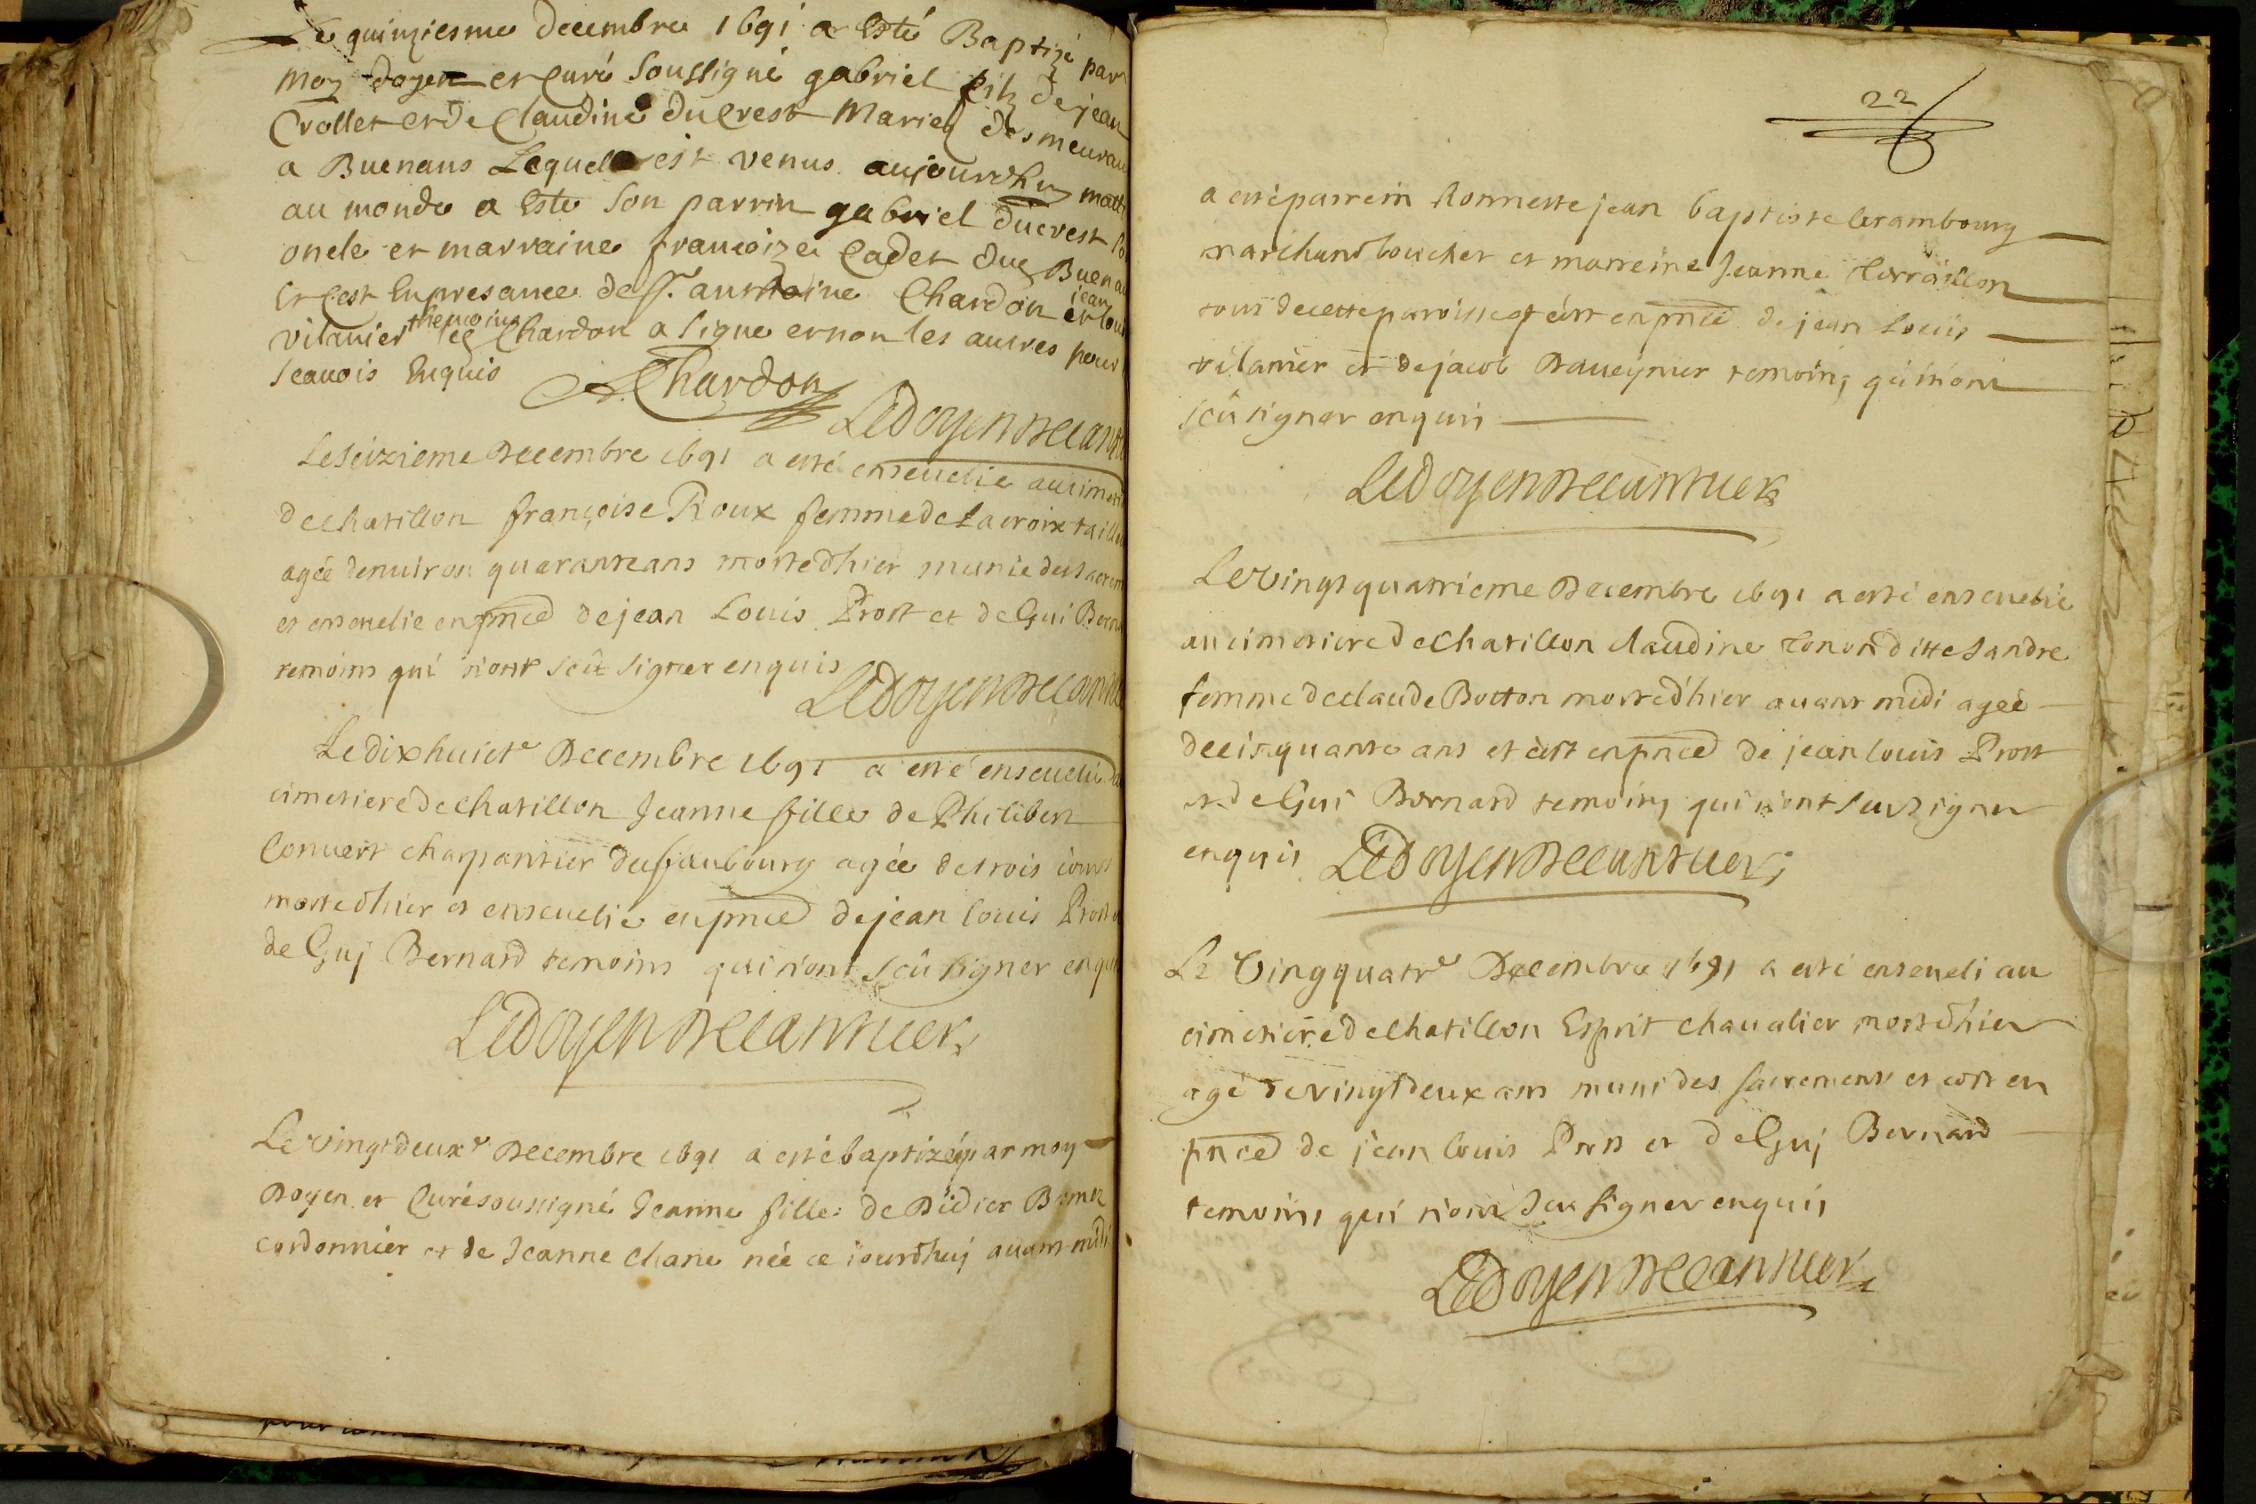 Le quinziesme decembre 1691 a Esté Baptizé par
moy doyen et Curé Soussigné gabriel filz de jean
Crollet et de Claudine du Crest Mariez desmeurau
a Buenans Lequel est venus aujourdhuy matt
au monde a Este Son parrin gabriel ducrest
oncle et marraine francoize Cadet due Buena
Et Cest Enpresance de sr. anthoine Chardon et jean Loui
vilanier themoins led Chardon a Signe et non les autres pour
scauois Enquis A. Chardon
Le doyen decanz
Le seizieme Decembre 1691 a esté enseuelie au cimeti
de chatillon françoise Roux femme de Lacroix taille
agée denuiron quarante ans morte dhier munie des sacrem
et enseuelie en pnce de jean Louis Prost et de Gui Berna
temoins qui n'ont sçû signer enquis
Le doyen
Le dix huict e Decembre 1691 a esté enseuelie a
cimetiere de chatillon Jeanne fille de Philibert
Conuert charpantier du faubourg agée de trois iours
morte dhier et enseuelie en pnce de jean louis Prost e
de Guj Bernard temoins qui n'ont sçû signer enqu
Le doyen
Le vingt deux e Decembre 1691 a esté baptizée par moy
Doyen et Curé soussigné Jeanne fille de Didier
cordonnier et de Jeanne Chane née ce iourdhuj auant midi
22
a esté parrein honneste jean baptiste
marchand boucher et marreine Jeanne Terraillon
tous de cette paroisse et c'est en pnce de jean Louis
vilanier et de jacob temoins qui n'ont
sçû signer enquis
Le doyen
Le vingt quatrieme Decembre 1691 a esté enseuelie
au cimetiere de Chatillon Claudine ditte Sandre
femme de claude Botton morte d'hier auant midi agée
de cinquante ans et c'est en pnce de jean louis Prost
et de Gui Bernard temoins qui n'ont sceu signer
enquis Le doyen
Le Vingquatr e Decembre 1691 a esté enseueli au
cimetiere de Chatillon Esprit chaualier mort d'hier
agé de vingt deux ans muni des sacrements et c'est en
pnce de jean louis Prost et de Guj Bernard
temoins qui n'ont sceu signer enquis
Le doyen